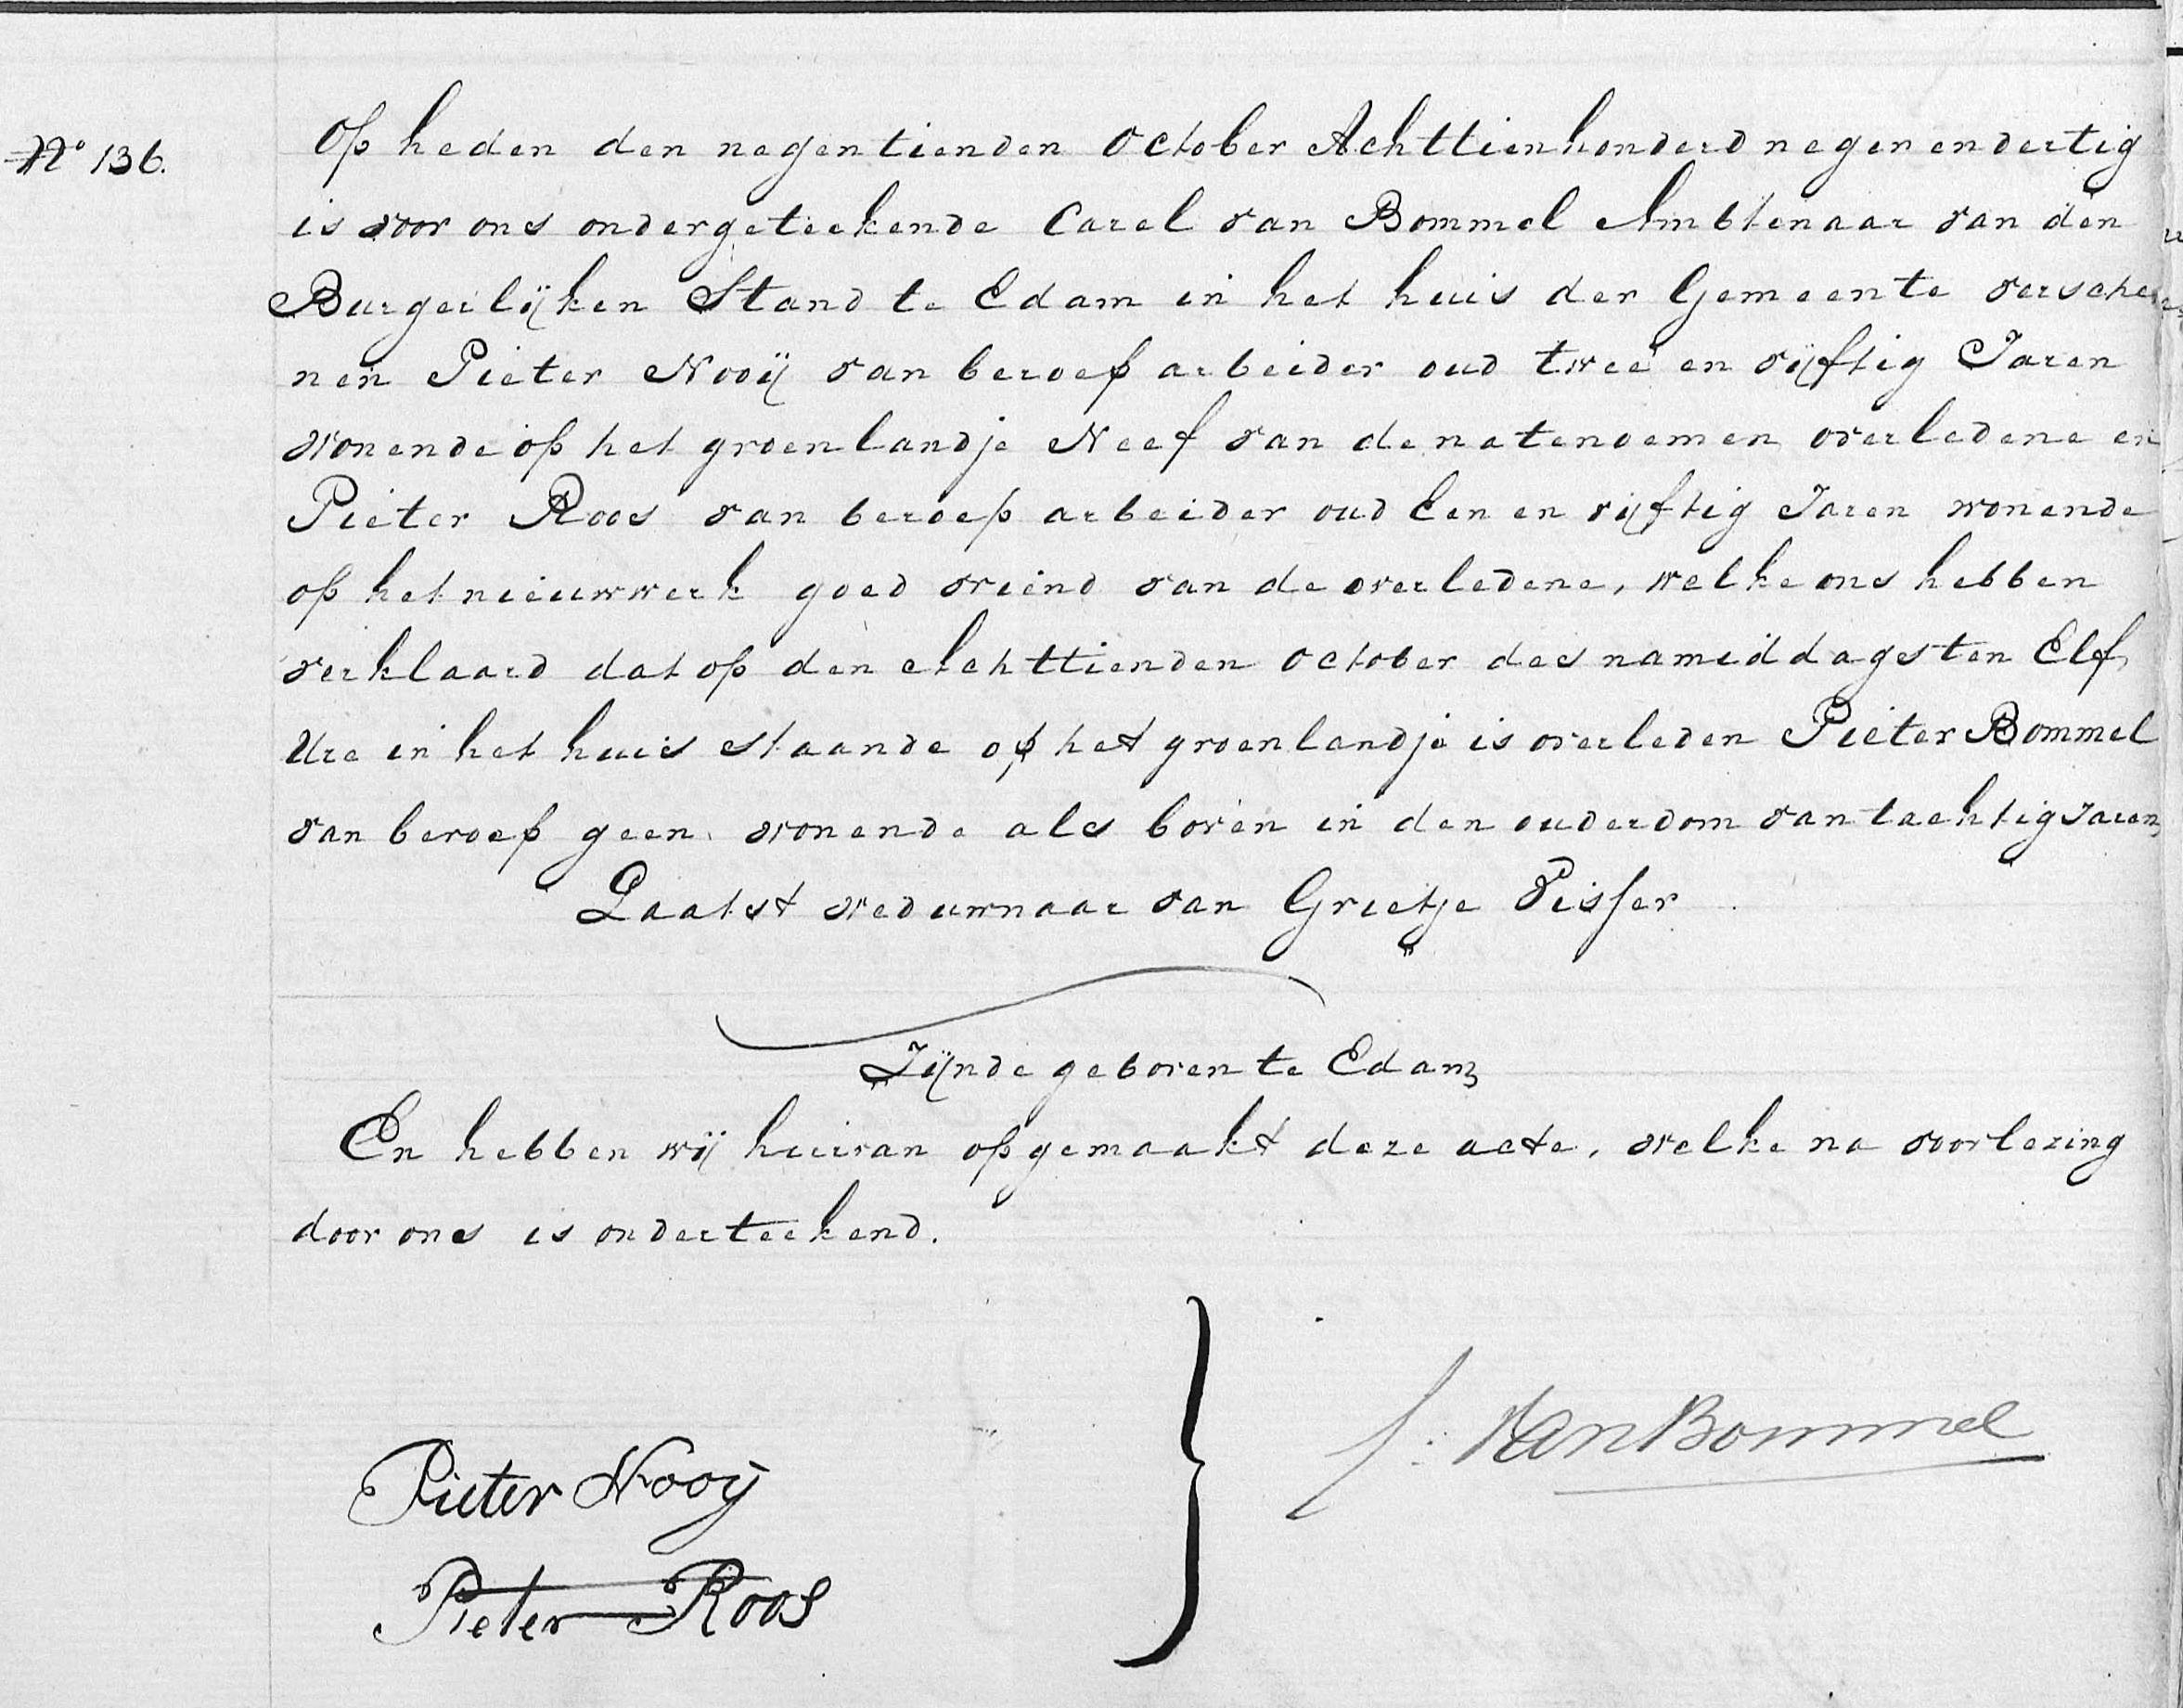 No 136.
Op heden den negentienden October Achttienhonderd negen en dertig
is voor ons ondergeteekende Carel van Bommel Ambtenaar van den
Burgerlijken Stand te Edam in het huis der Gemeente versche
nen Pieter Nooij van beroep arbeider oud twee en vijftig Jaren
wonende op het groenlandje Neef van de natenoemen overledene en
Pieter Roos van beroep arbeider oud Een en vijftig Jaren wonende
op het nieuwwerk goed vriend van de overledene, welke ons hebben
verklaard dat op den Achttienden October des namiddags ten Elf
Ure in het huis staande op het groenlandje is overleden Pieter Bommel
van beroep geen wonende als boven in den ouderdom van tachtig Jaren
Laatst weduwnaar van Grietje Visser
Zijnde geboren te Edam
En hebben wij hiervan opgemaakt deze acte, welke na voorlezing
door ons is onderteekend.
Pieter Nooij
Pieter Roos
Van Bommel